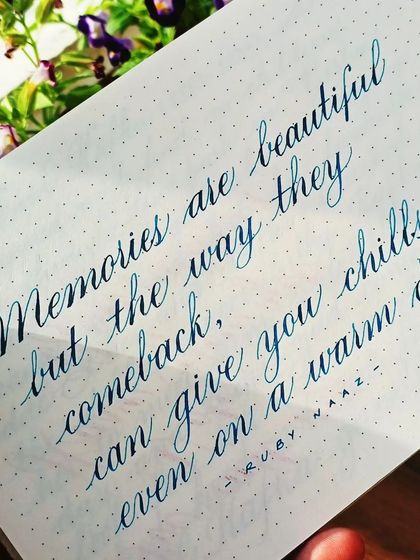 Memories are beautiful
but the way they
comeback,
can give you chills
even on a warm
- RUBY NAAZ -